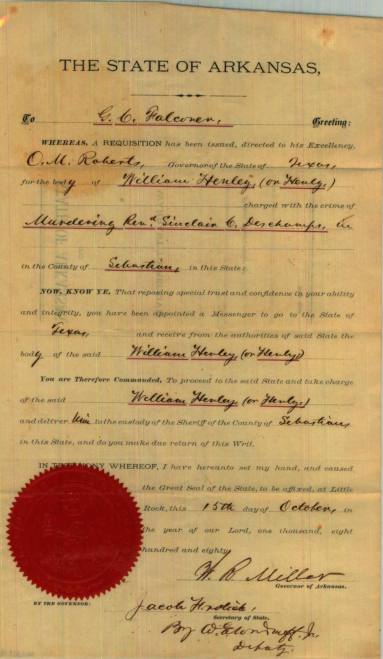 THE STATE OF ARKANSAS,
To G. C. Falconer, Greeting:
WHEREAS, A REQUISITION has been issued, directed to his Excellency,
O. M. Roberts, Governor of the State of Texas,
for the body of William Henley, (or Henly,)
charged with the crime of
Murdering Revd. Sinclair C. Deschamps, in
in the County of Sebastian, in this State:
NOW, KNOW YE, That reposing special trust and confidence in your ability
and integrity, you have been appointed a Messenger to go to the State of
Texas, and receive from the authorities of said State the
body of the said William Henley (or Henly)
You are Therefore Commanded, To proceed to the said State and take charge
of the said William Henley, (or Henly,)
and deliver him to the custody of the Sheriff of the County of Sebastian,
in this State, and do you make due return of this Writ.
IN TESTIMONY WHEREOF, I have hereunto set my hand, and caused
the Great Seal of the State, to be affixed, at Little
Rock, this 15th day of October, in
the year of our Lord, one thousand, eight
hundred and eighty
W. R. Miller
Governor of Arkansas.
BY THE GOVERNOR:
Jacob Frolich,
Secretary of State,
By W. Woodruff Jr.
Deputy